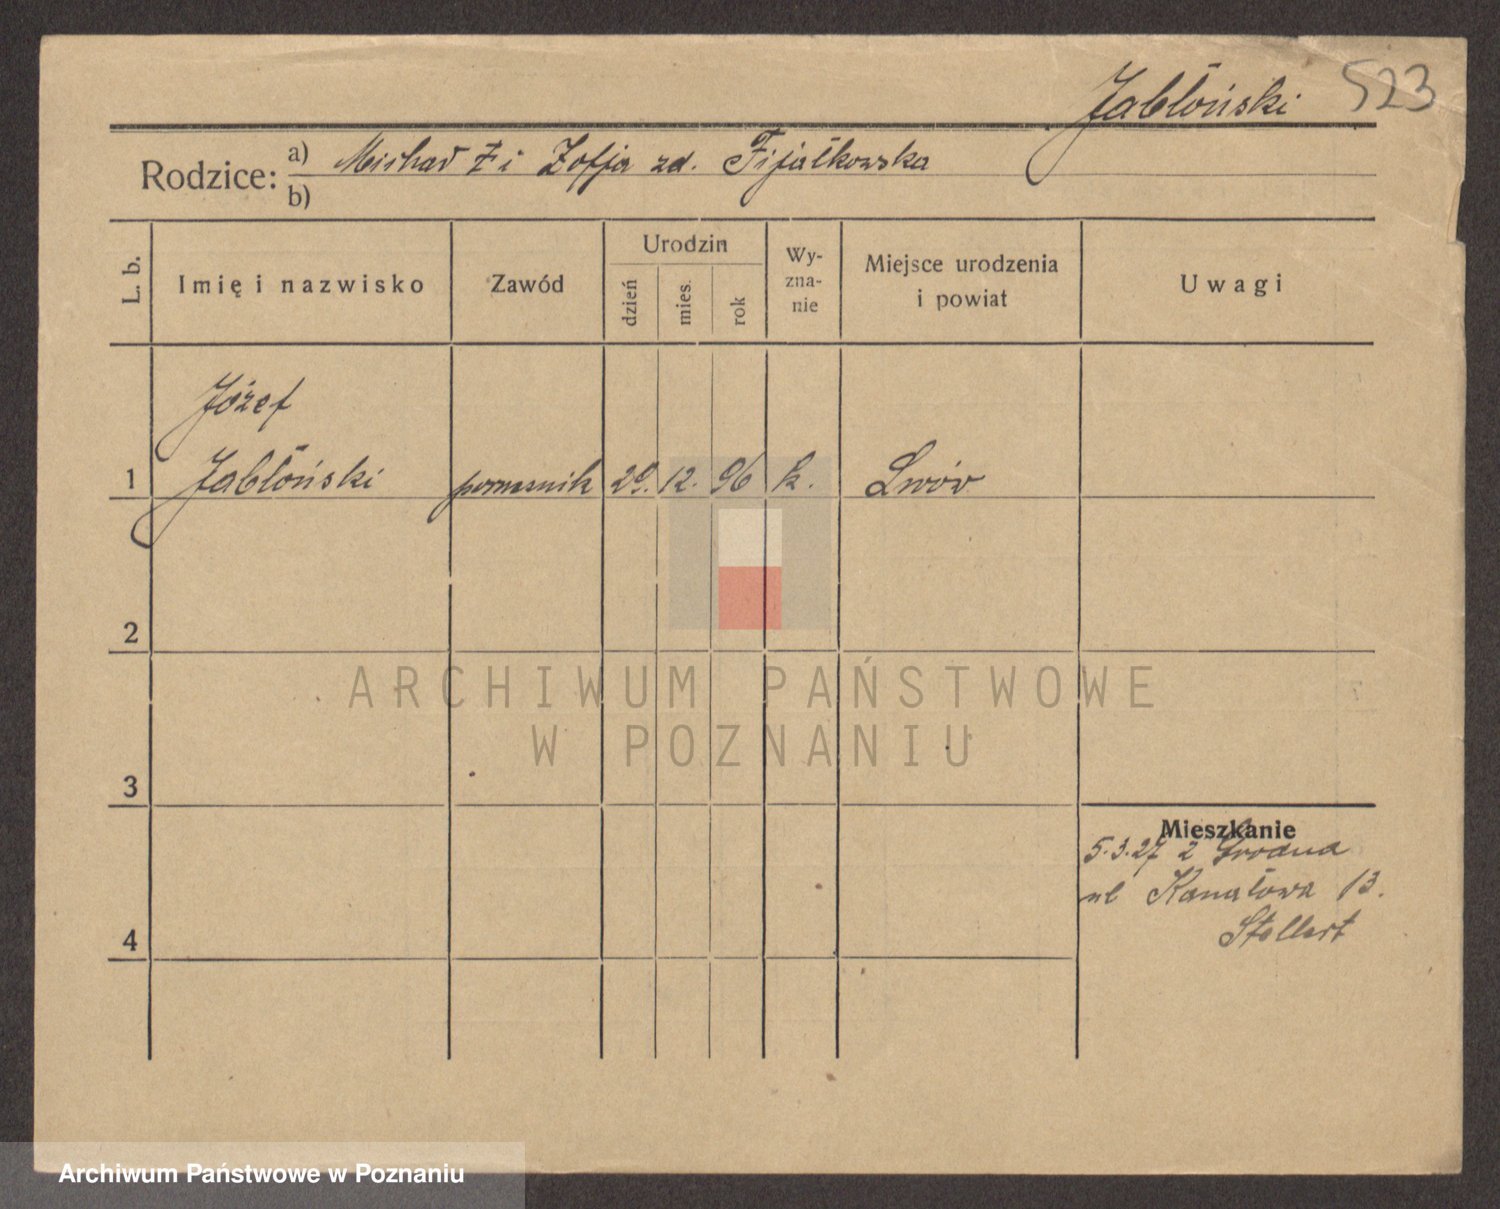 Jabłoński 523
Rodzice: a) Michał Ż i Zofja zd. Fijałkowska
b)
L. b. Imię i nazwisko Zawód Urodzin dzień mies. rok Wyznanie Miejsce urodzenia i powiat Uwagi
Józef
1 Jabłoński 29. 12. 96 k. Lwów
2
ARCHIWUM PAŃSTWOWE
W POZNANIU
3
Mieszkanie
5.3.27 z Grodna
ul Kanałowa 13.
Stellert
4
Archiwum Państwowe w Poznaniu